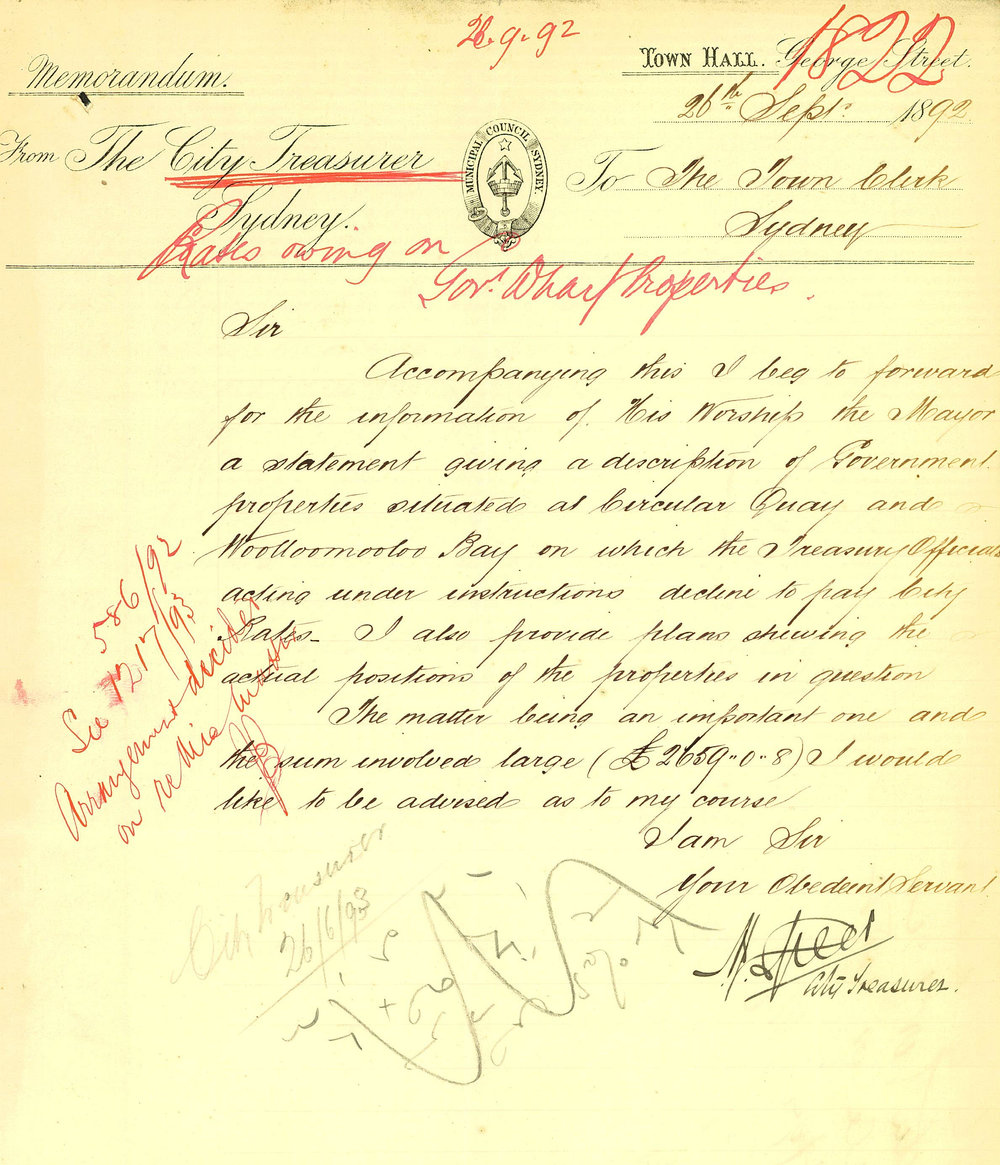 26.9.92
1822
Memorandum.
TOWN HALL. George Street.
26th Septr. 1892
From The City Treasurer
Sydney.
MUNICIPAL COUNCIL SYDNEY.
To The Town Clerk
Sydney
Rates owing on
Govt. Wharf Properties.
Sir
Accompanying this I beg to forward
for the information of His Worship the Mayor
a statement giving a description of Government
properties situated at Circular Quay and
Woolloomooloo Bay on which the Treasury Officials
acting under instructions decline to pay City
Rates_ I also provide plans shewing the
actual positions of the properties in question
The matter being an important one and
the sum involved large (£2659"0"8) I would
like to be advised as to my course
I am Sir
Your Obedient Servant
City Treasurer.
586/92
See 1217/93
Arrangement decided
on re this
City Treasurer
26/6/93